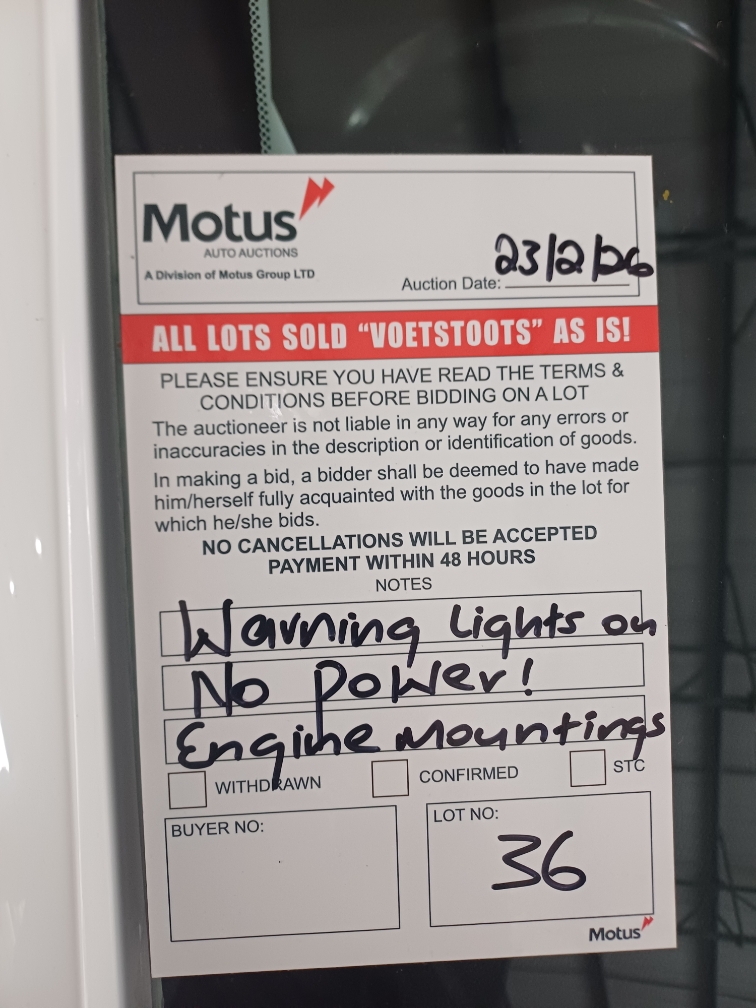 Motus
AUTO AUCTIONS
A Division of Motus Group LTD
Auction Date: 23/2/26
ALL LOTS SOLD “VOETSTOOTS” AS IS!
PLEASE ENSURE YOU HAVE READ THE TERMS &
CONDITIONS BEFORE BIDDING ON A LOT
The auctioneer is not liable in any way for any errors or
inaccuracies in the description or identification of goods.
In making a bid, a bidder shall be deemed to have made
him/herself fully acquainted with the goods in the lot for
which he/she bids.
NO CANCELLATIONS WILL BE ACCEPTED
PAYMENT WITHIN 48 HOURS
NOTES
Warning Lights on
No Power!
Engine Mountings
WITHDRAWN CONFIRMED STC
BUYER NO:
LOT NO:
36
Motus